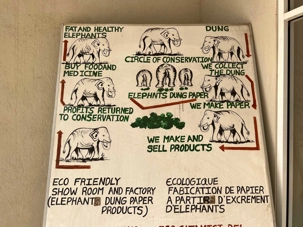 FAT AND HEALTHY
ELEPHANTS
DUNG
CIRCLE OF CONSERVATION
BUY FOOD AND
MEDICINE
WE COLLECT
THE DUNG
ELEPHANTS DUNG PAPER
WE MAKE PAPER
PROFITS RETURNED
TO CONSERVATION
WE MAKE AND
SELL PRODUCTS
ECO FRIENDLY
SHOW ROOM AND FACTORY
(ELEPHANTS DUNG PAPER
PRODUCTS)
ECOLOGIQUE
FABICATION DE PAPIER
A PARTIR D'EXCREMENT
D'ELEPHANTS